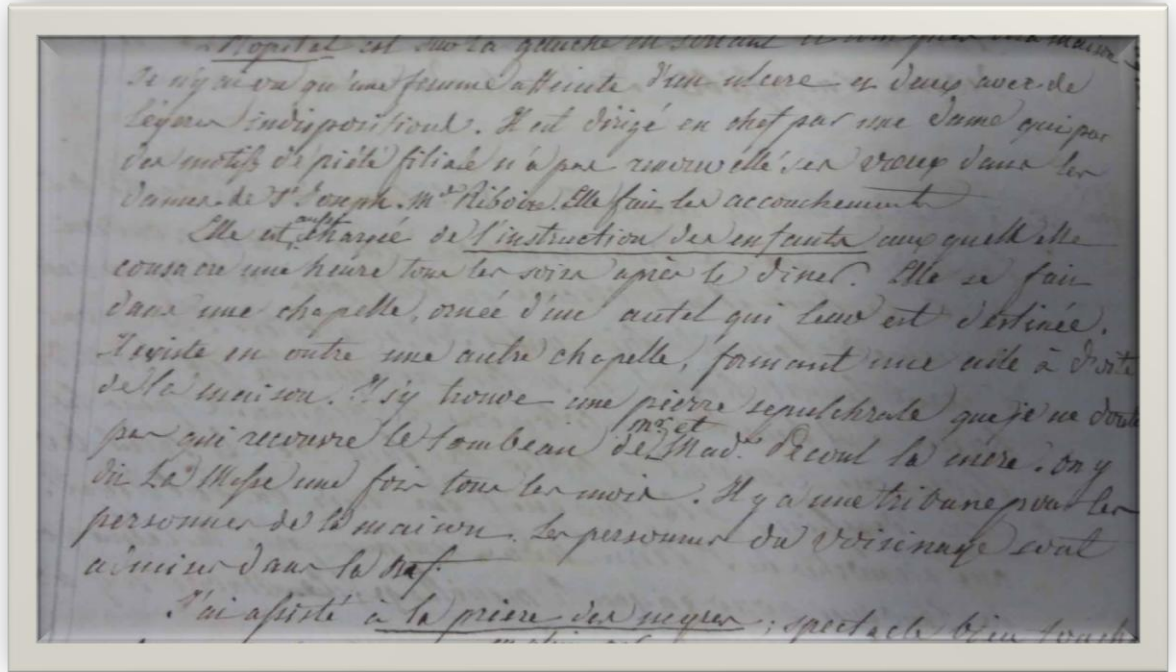 hopital est sur la gauche en sortant
Je n'y ai vu qu'une femme atteinte d'un ulcere et deux avec de
légeres indispositions. Il est dirigé en chef par une Dame qui par
des motifs de piété filiale n'a pas renouvellé ses vœux dans les
Dames de St Joseph. Mde Riboin. Elle fait les accouchements
Elle est aussi chargée de l'instruction des enfants auxquells elle
consacre une heure tous les soirs après le diner. Elle se fait
dans une chapelle, ornée d'un autel qui leur est destinée.
Il existe en outre une autre chapelle, formant une aile à droite
de la maison. Il s'y trouve une pierre sepulchrale que je ne doute
pas qui recouvre le tombeau de Mr et Made la mère. on y
dit La Messe une fois tous les mois. Il y a une tribune pour les
personnes de la maison. Les personnes du voisinage sont
admises dans la nef.
J'ai assisté à la priere des negres ; spectacle bien